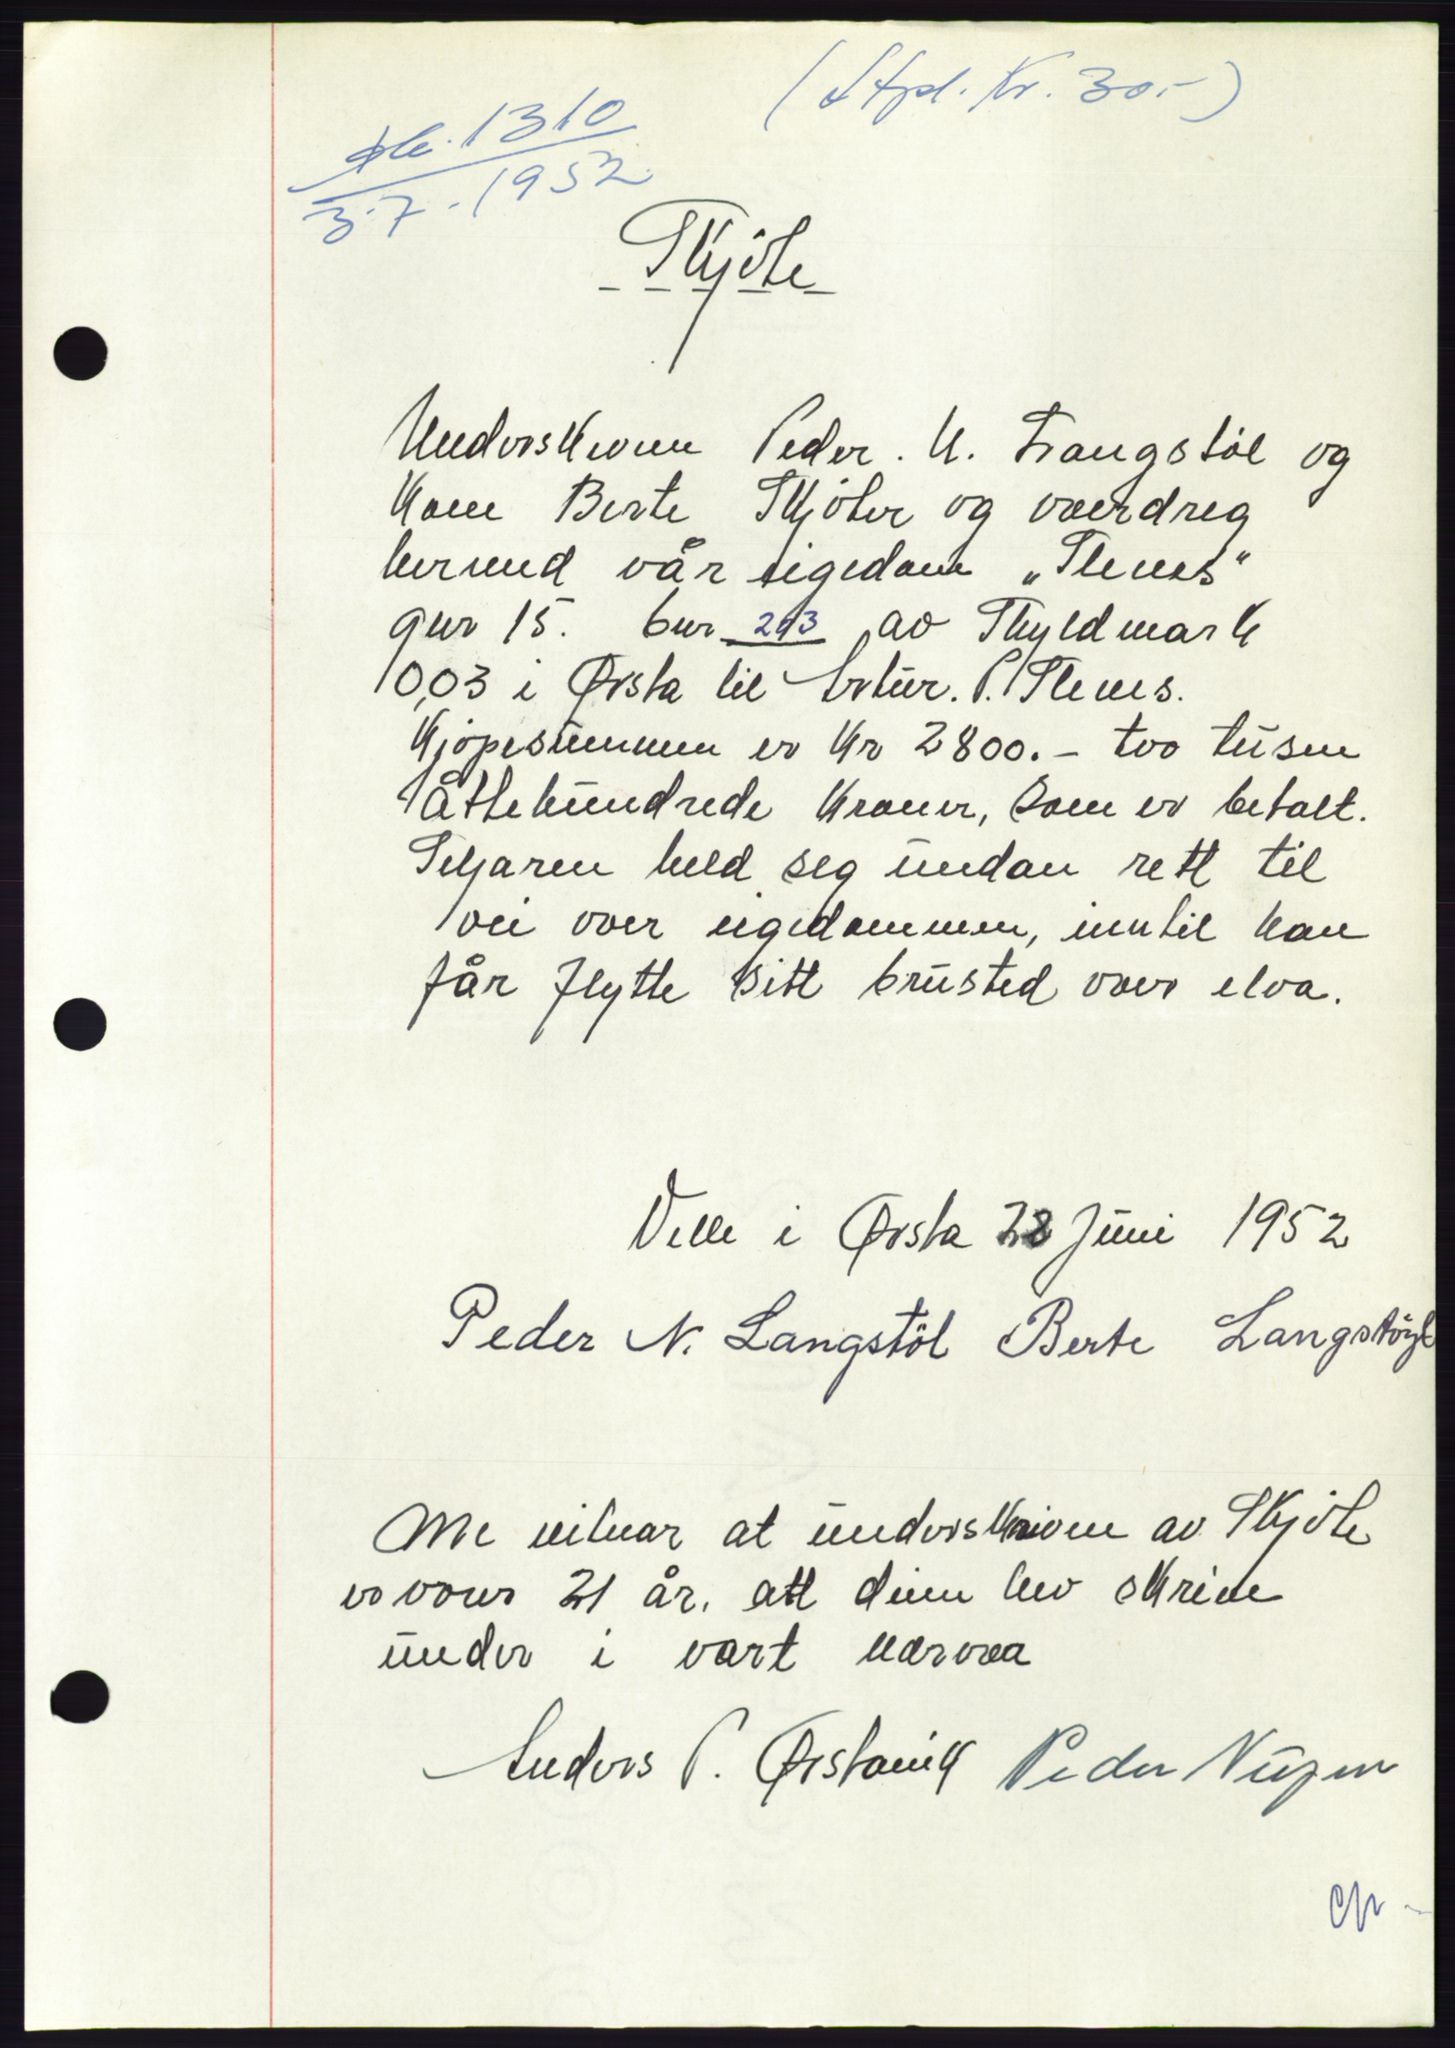 (Stpl. Kr. 30.-)
db. 1310
3.7.1952
Skjöte
Underskreven Peder. N. Langstöl og
Kone Berte Skjöter og overdreg
hermed vår eigedom „Flems"
gnr 15. bnr 293 av Skyldmark
0,03 i Ørsta til Artur. P. Flems.
Kjöpesummen er Kr 2800.- tvo tusen
åttehundrede Kroner, som er betalt.
Seljaren held seg undan rett til
vei over eigedommen, inntil han
får flytte sitt brusted over elva.
Velle i Ørsta 28 Juni 1952
Peder N. Langstöl Berte Langstöyl
Me vitnar at underskrivne av Skjöte
er over 21 år. att deim hev skrive
under i vart nærver
Anders P. Ørstavik Peder